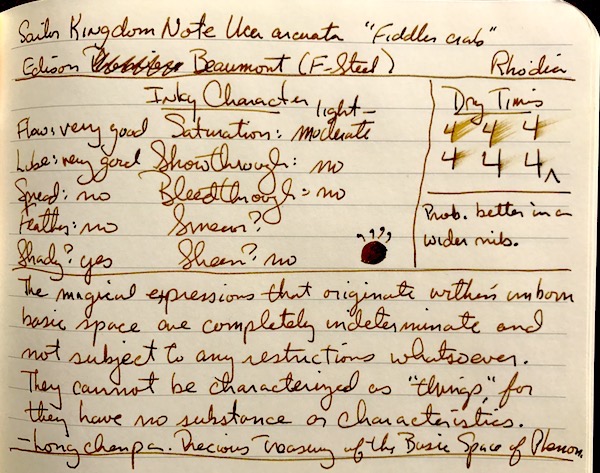 Sailor Kingdom Note Uca arcuata "Fiddler crab"
Edison Beaumont (F-Steel) Rhodia
Inky Character
light-
Flow: very good Saturation: moderate
Lube: very good Showthrough: no
Spread: no Bleedthrough: no
Feather: no Smear?
Shady? yes Sheen? no
Dry Times
4 4 4
4 4 4
Prob. better in a
wider nib.
The magical expressions that originate within unborn
basic space are completely indeterminate and
not subject to any restrictions whatsoever.
They cannot be characterized as "things," for
they have no substance or characteristics.
-Longchenpa. Precious Treasury of the Basic Space of Phenom.